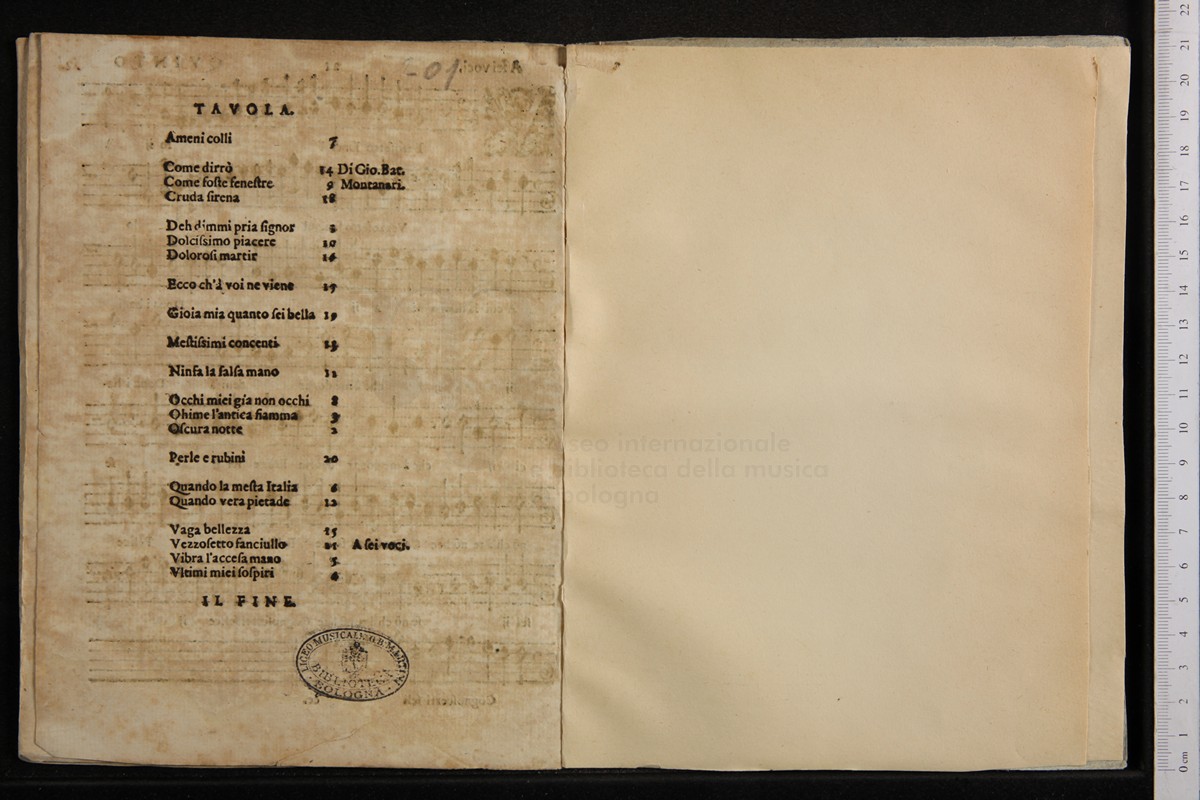 -01
TAVOLA.
Ameni colli 7
Come dirrò 14 Di Gio. Bat.
Come foſte feneſtre 9 Montanari.
Cruda ſirena 18
Deh dimmi pria ſignor
Dolciſsimo piacere 10
Doloroſi martir 16
Ecco ch'à voi ne viene 17
Gioia mia quanto ſei bella 19
Meſtiſsimi concenti 13
Ninfa la falſa mano 11
Occhi miei gia non occhi 8
Ohime l'antica fiamma
Oſcura notte 2
Perle e rubini 20
Quando la meſta Italia 6
Quando vera pietade 12
Vaga bellezza 15
Vezzoſetto fanciullo 21 A ſei voci.
Vibra l'acceſa mano 5
Vltimi miei ſoſpiri
IL FINE.
LICEO MUSICALE G.B. MARTINI
BIBLIOTECA
BOLOGNA
museo internazionale
e biblioteca della musica
di bologna
0 cm 1 2 3 4 5 6 7 8 9 10 11 12 13 14 15 16 17 18 19 20 21 22